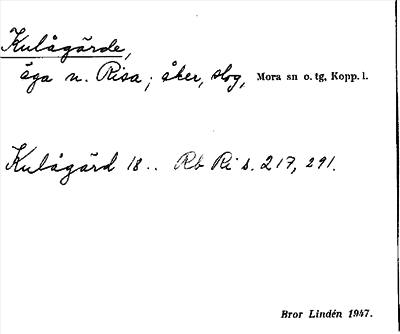 Kulågärde,
äga n. Risa; åker, slog, Mora sn o. tg, Kopp. l.
Kulågärd 18.. Rb Ri s. 217, 291.
Bror Lindén 1947.